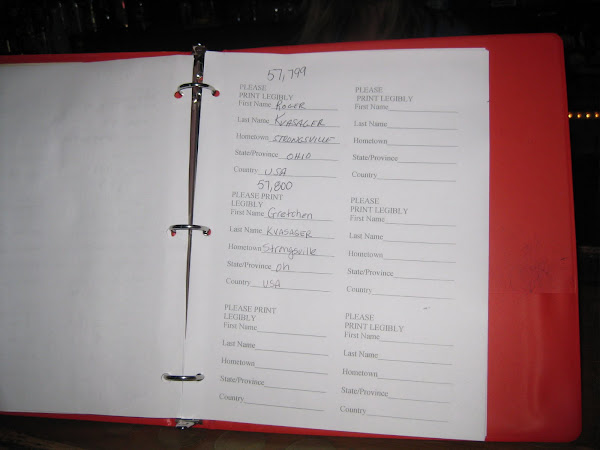 57,799
PLEASE
PRINT LEGIBLY
First Name ROGER
Last Name KVASAGER
Hometown STRONGSVILLE
State/Province OHIO
Country USA
57,800
PLEASE PRINT
LEGIBLY
First Name Gretchen
Last Name KVASAGER
Hometown Strongsville
State/Province oh
Country USA
PLEASE PRINT
LEGIBLY
First Name
Last Name
Hometown
State/Province
Country
PLEASE
PRINT LEGIBLY
First Name
Last Name
Hometown
State/Province
Country
PLEASE
PRINT LEGIBLY
First Name
Last Name
Hometown
State/Province
Country
PLEASE
PRINT LEGIBLY
First Name
Last Name
Hometown
State/Province
Country